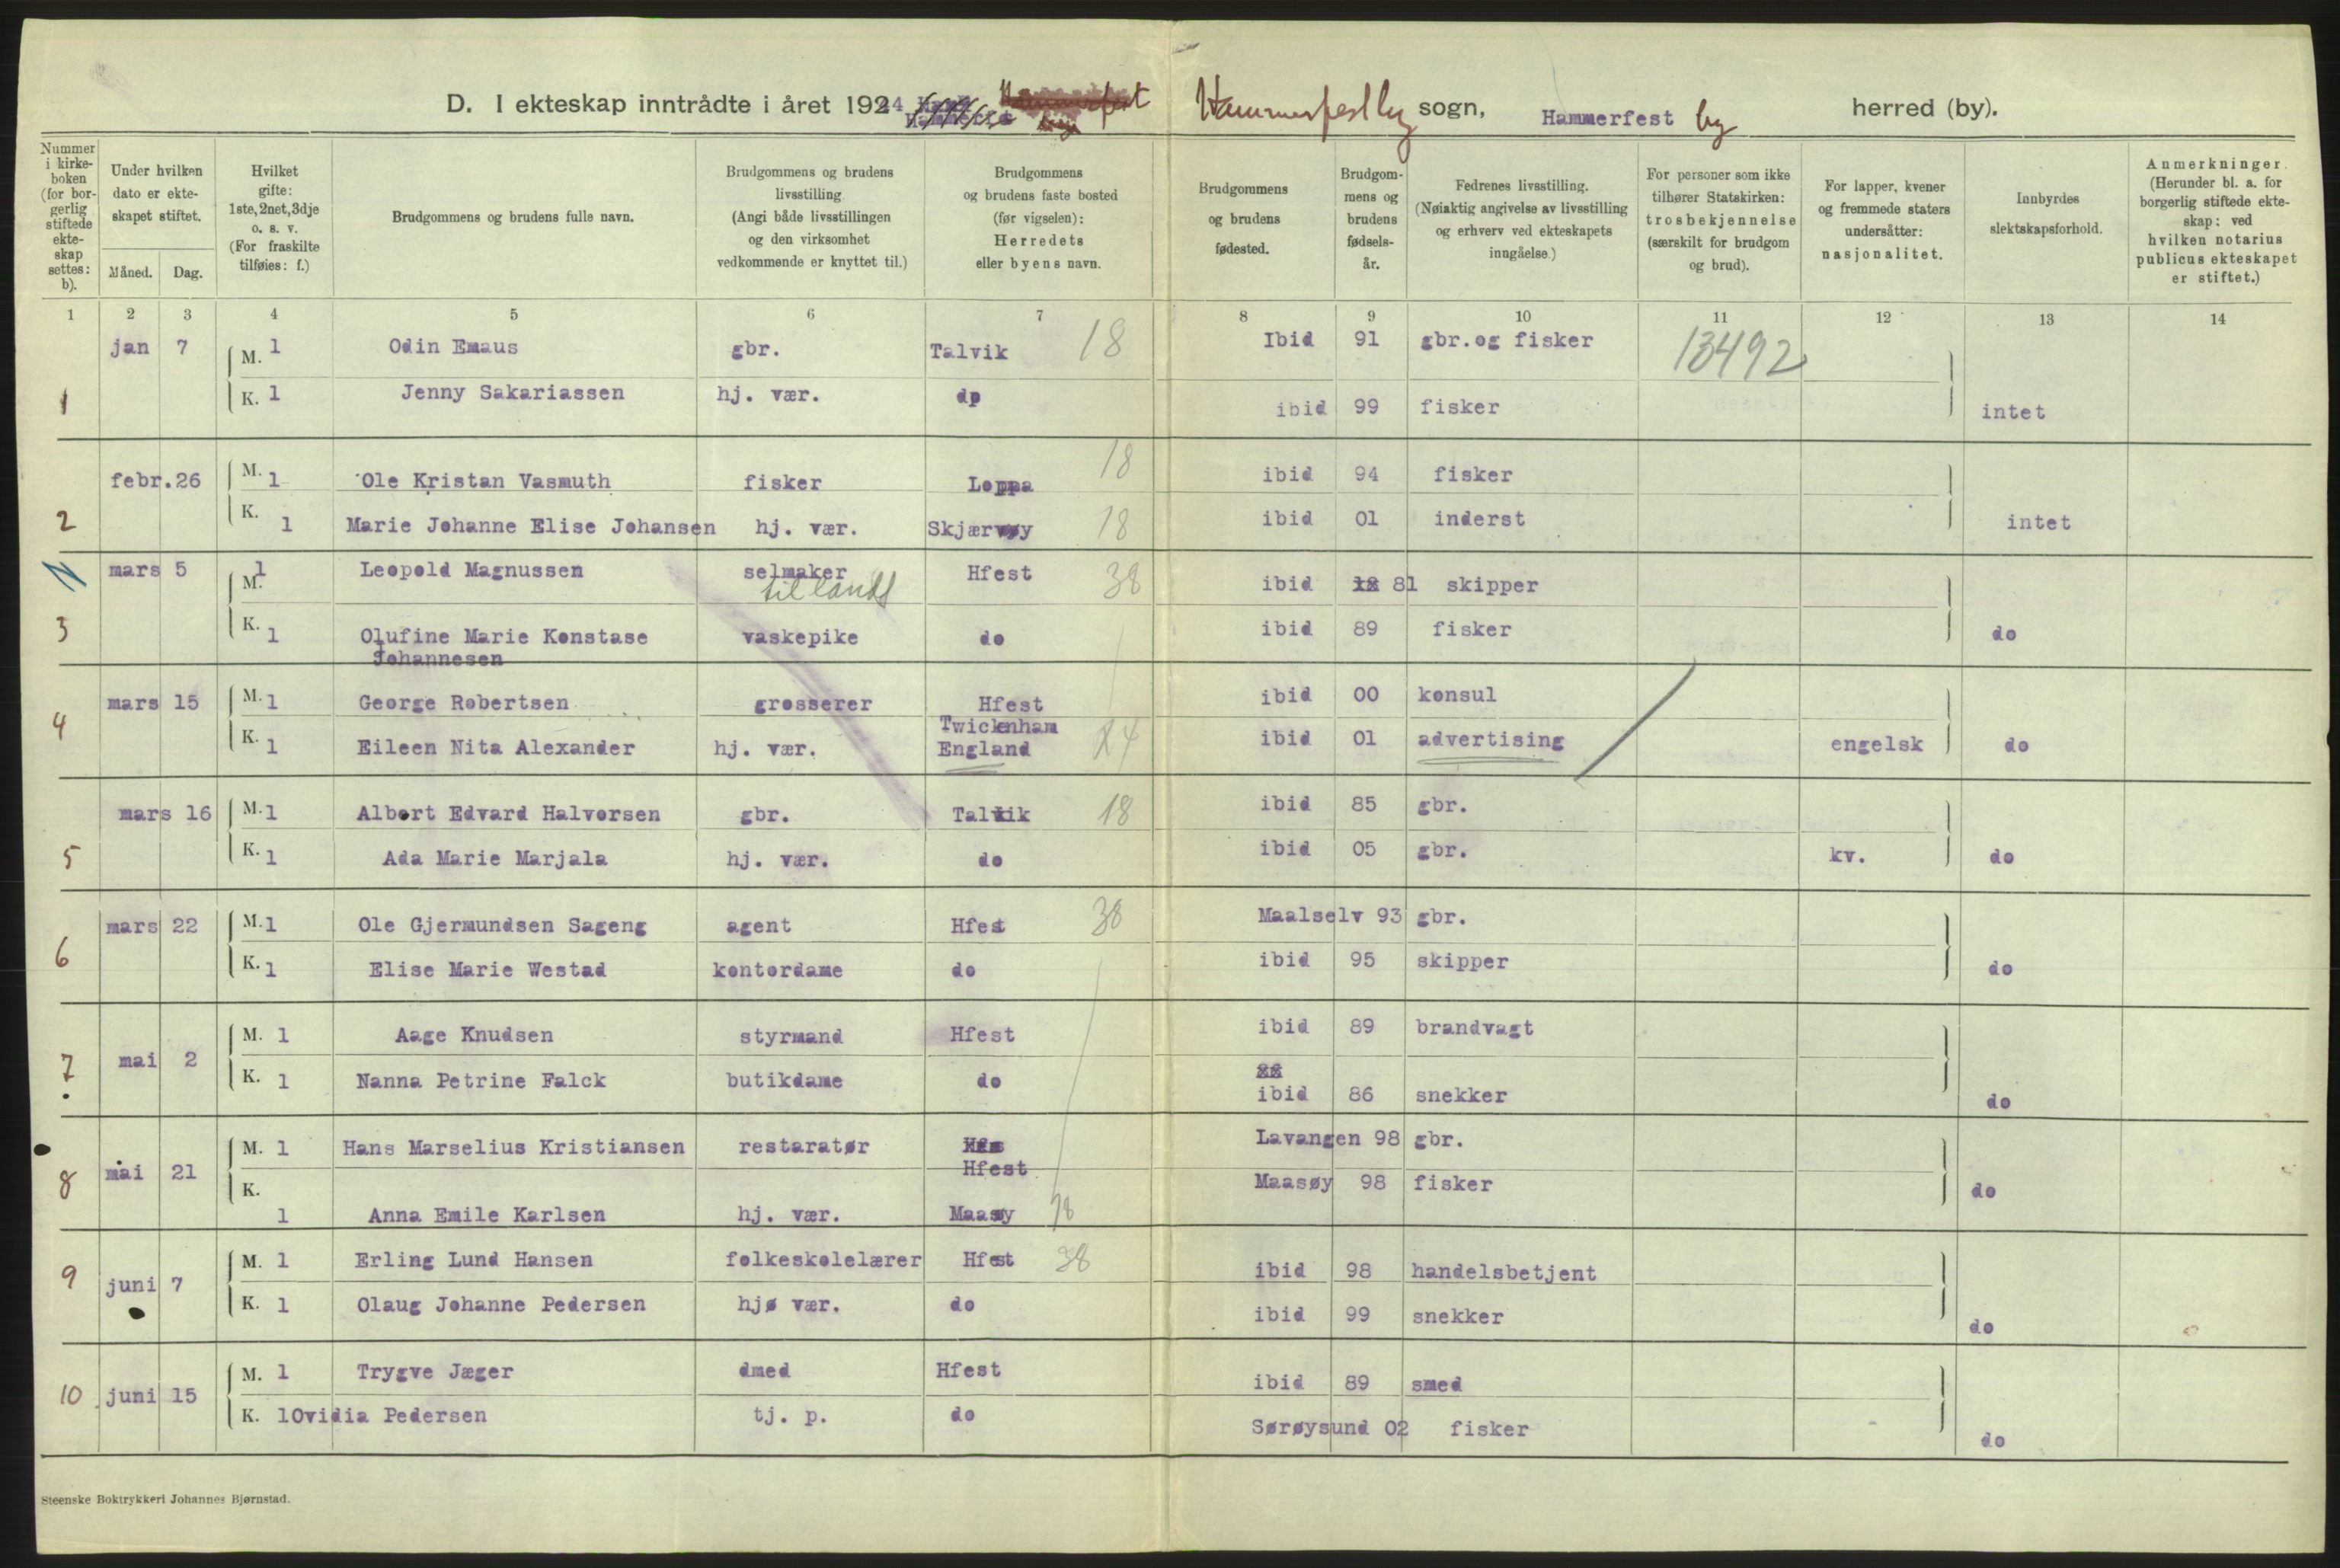 D. I ekteskap inntrådte i året 1924 Hammerfest by sogn, Hammerfest by herred (by).
Nummer i kirkeboken (for borgerlig stiftede ekteskap settes: b).
Under hvilken dato er ekteskapet stiftet.
Måned. Dag.
Hvilket gifte: 1ste, 2net, 3dje o. s. v. (For fraskilte tilføies: f.)
Brudgommens og brudens fulle navn.
Brudgommens og brudens livsstilling (Angi både livsstillingen og den virksomhet vedkommende er knyttet til.)
Brudgommens og brudens faste bosted (før vigselen): Herredets eller byens navn.
Brudgommens og brudens fødested.
Brudgommens og brudens fødselsår.
Fedrenes livsstilling. (Nøiaktig angivelse av livsstilling og erhverv ved ekteskapets inngåelse.)
For personer som ikke tilhører Statskirken: trosbekjennelse (særskilt for brudgom og brud).
For lapper, kvener og fremmede staters undersåtter: nasjonalitet.
Innbyrdes slektskapsforhold.
Anmerkninger. (Herunder bl. a. for borgerlig stiftede ekteskap: ved hvilken notarius publicus ekteskapet er stiftet.)
1 2 3 4 5 6 7 8 9 10 11 12 13 14
jan 7 M. 1 Odin Emaus gbr. Talvik 18 Ibid 91 gbr.og fisker 13492
1 K. 1 Jenny Sakariassen hj. vær. do ibid 99 fisker intet
18
febr.26 M. 1 Ole Kristan Vasmuth fisker Loppa ibid 94 fisker
2 K. 1 Marie Johanne Elise Johansen hj. vær. Skjærvøy 18 ibid 01 inderst intet
mars 5 M. 1 Leopold Magnussen selmaker Hfest 38 ibid 81 skipper
til lands
3 K. 1 Olufine Marie Konstase vaskepike do ibid 89 fisker do
Johannesen
mars 15 M. 1 George Robertsen grosserer Hfest ibid 00 konsul
Twickenham
4 K. 1 Eileen Nita Alexander hj. vær. England 24 ibid 01 advertising engelsk do
mars 16 M. 1 Albert Edvard Halvorsen gbr. Talvik 18 ibid 85 gbr.
5 K. 1 Ada Marie Marjala hj. vær. do ibid 05 gbr. kv. do
mars 22 M. 1 Ole Gjermundsen Sageng agent Hfest 38 Maalselv 93 gbr.
6 K. 1 Elise Marie Westad kontordame do ibid 95 skipper do
M. 1 Aage Knudsen styrmand Hfest ibid 89 brandvagt
7 mai 2 K. 1 Nanna Petrine Falck butikdame do ibid 86 snekker do
M. 1 Hans Marselius Kristiansen restaratør Lavangen 98 gbr.
8 mai 21 Hfest
K. 1 Anna Emile Karlsen hj. vær. Maasøy 18 Maasøy 98 fisker do
M. 1 Erling Lund Hansen folkeskolelærer Hfest 38 ibid 98 handelsbetjent
9 juni 7 K. 1 Olaug Johanne Pedersen hjø vær. do ibid 99 snekker do
M. 1 Trygve Jæger dmed Hfest ibid 89 smed
10 juni 15 K. 1 Ovidia Pedersen tj. p. do Sørøysund 02 fisker do
Steenske Boktrykkeri Johannes Bjørnstad.